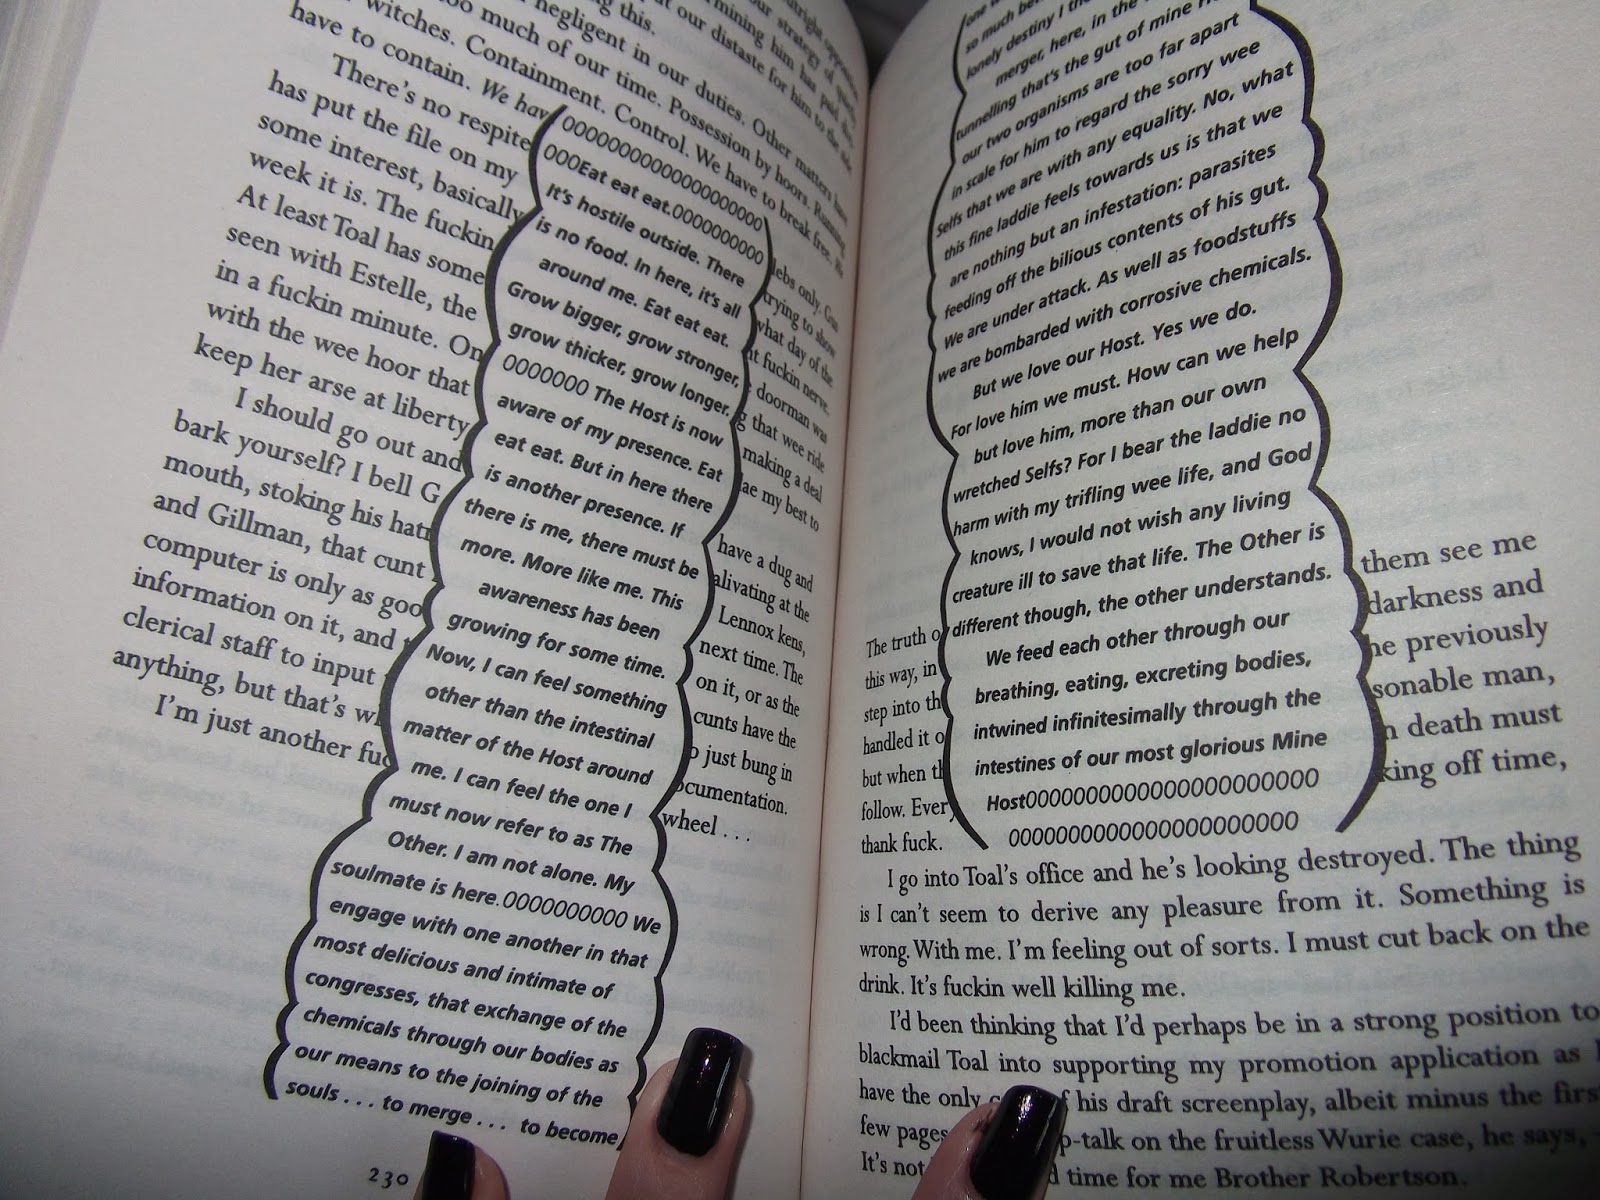 negligent in our duties. Other matters have
witches. Containment. Control. We have to break free. We
have to contain. We hav
There's no respite
has put the file on my
some interest, basically
week it is. The fuckin
At least Toal has some
seen with Estelle, the
in a fuckin minute. On
with the wee hoor that
keep her arse at liberty
I should go out and
bark yourself? I bell G
mouth, stoking his hatr
and Gillman, that cunt
computer is only as goo
information on it, and
clerical staff to input
anything, but that's wh
I'm just another fuc
000000000000000000000
000Eat eat eat.0000000000
It's hostile outside. There
is no food. In here, it's all
around me. Eat eat eat.
Grow bigger, grow stronger,
grow thicker, grow longer.
0000000 The Host is now
aware of my presence. Eat
eat eat. But in here there
is another presence. If
there is me, there must be
more. More like me. This
awareness has been
growing for some time.
Now, I can feel something
other than the intestinal
matter of the Host around
me. I can feel the one I
must now refer to as The
Other. I am not alone. My
soulmate is here.0000000000 We
engage with one another in that
most delicious and intimate of
congresses, that exchange of the
chemicals through our bodies as
our means to the joining of the
souls . . . to merge . . . to become
lebs only. Gus
trying to show
what day of the
nt fuckin nerve.
doorman was
g that wee ride
making a deal
ae my best to
have a dug and
alivating at the
Lennox kens,
next time. The
on it, or as the
cunts have the
o just bung in
ocumentation.
wheel . . .
230
so much be
lonely destiny I th
merger, here, in the
tunnelling that's the gut of mine Ho
our two organisms are too far apart
in scale for him to regard the sorry wee
Selfs that we are with any equality. No, what
this fine laddie feels towards us is that we
are nothing but an infestation: parasites
feeding off the bilious contents of his gut.
We are under attack. As well as foodstuffs
we are bombarded with corrosive chemicals.
But we love our Host. Yes we do.
For love him we must. How can we help
but love him, more than our own
wretched Selfs? For I bear the laddie no
harm with my trifling wee life, and God
knows, I would not wish any living
creature ill to save that life. The Other is
different though, the other understands.
We feed each other through our
breathing, eating, excreting bodies,
intwined infinitesimally through the
intestines of our most glorious Mine
Host0000000000000000000000
0000000000000000000000
The truth o
this way, in
step into th
handled it o
but when th
follow. Ever
thank fuck.
them see me
darkness and
he previously
sonable man,
n death must
king off time,
I go into Toal's office and he's looking destroyed. The thing
is I can't seem to derive any pleasure from it. Something is
wrong. With me. I'm feeling out of sorts. I must cut back on the
drink. It's fuckin well killing me.
I'd been thinking that I'd perhaps be in a strong position to
blackmail Toal into supporting my promotion application as I
have the only c f his draft screenplay, albeit minus the firs
few pages p-talk on the fruitless Wurie case, he says,
It's not d time for me Brother Robertson.